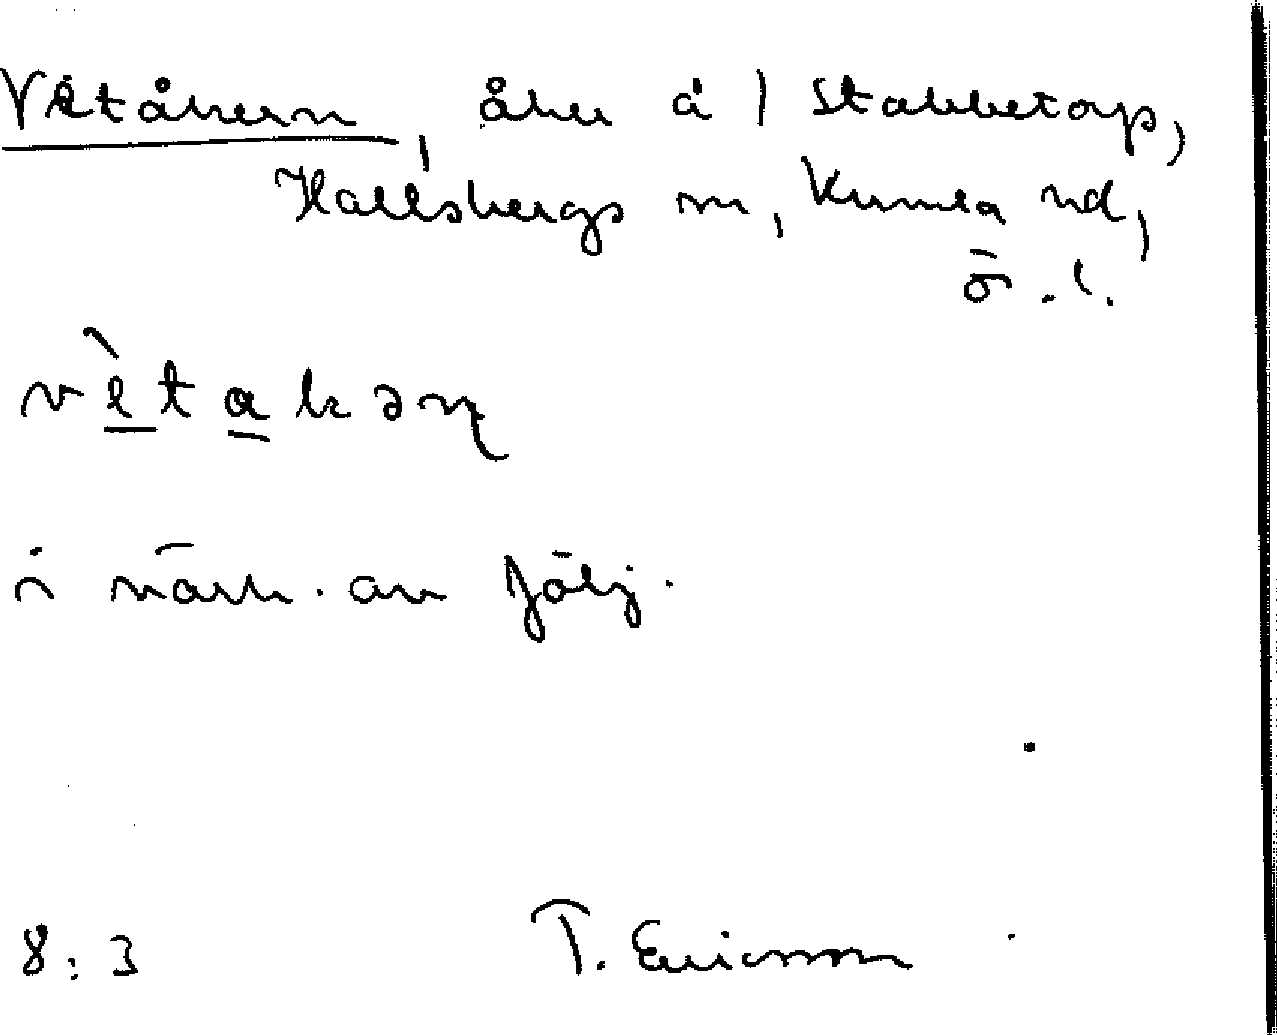 Vetåkern, åker å / Stabbetorp,
Hallsbergs sn, Kumla hd,
Ö. l.
vètakəɳ
i närh. av följ.
8:3 T. Ericsson